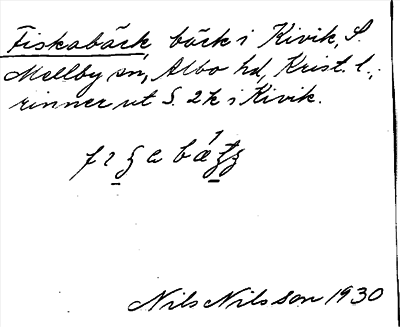 Fiskabäck, bäck i Kivik, S.
Mellby sn, Albo hd, Krist. l.;
rinner ut S. 2k i Kivik.
Nils Nilsson 1930